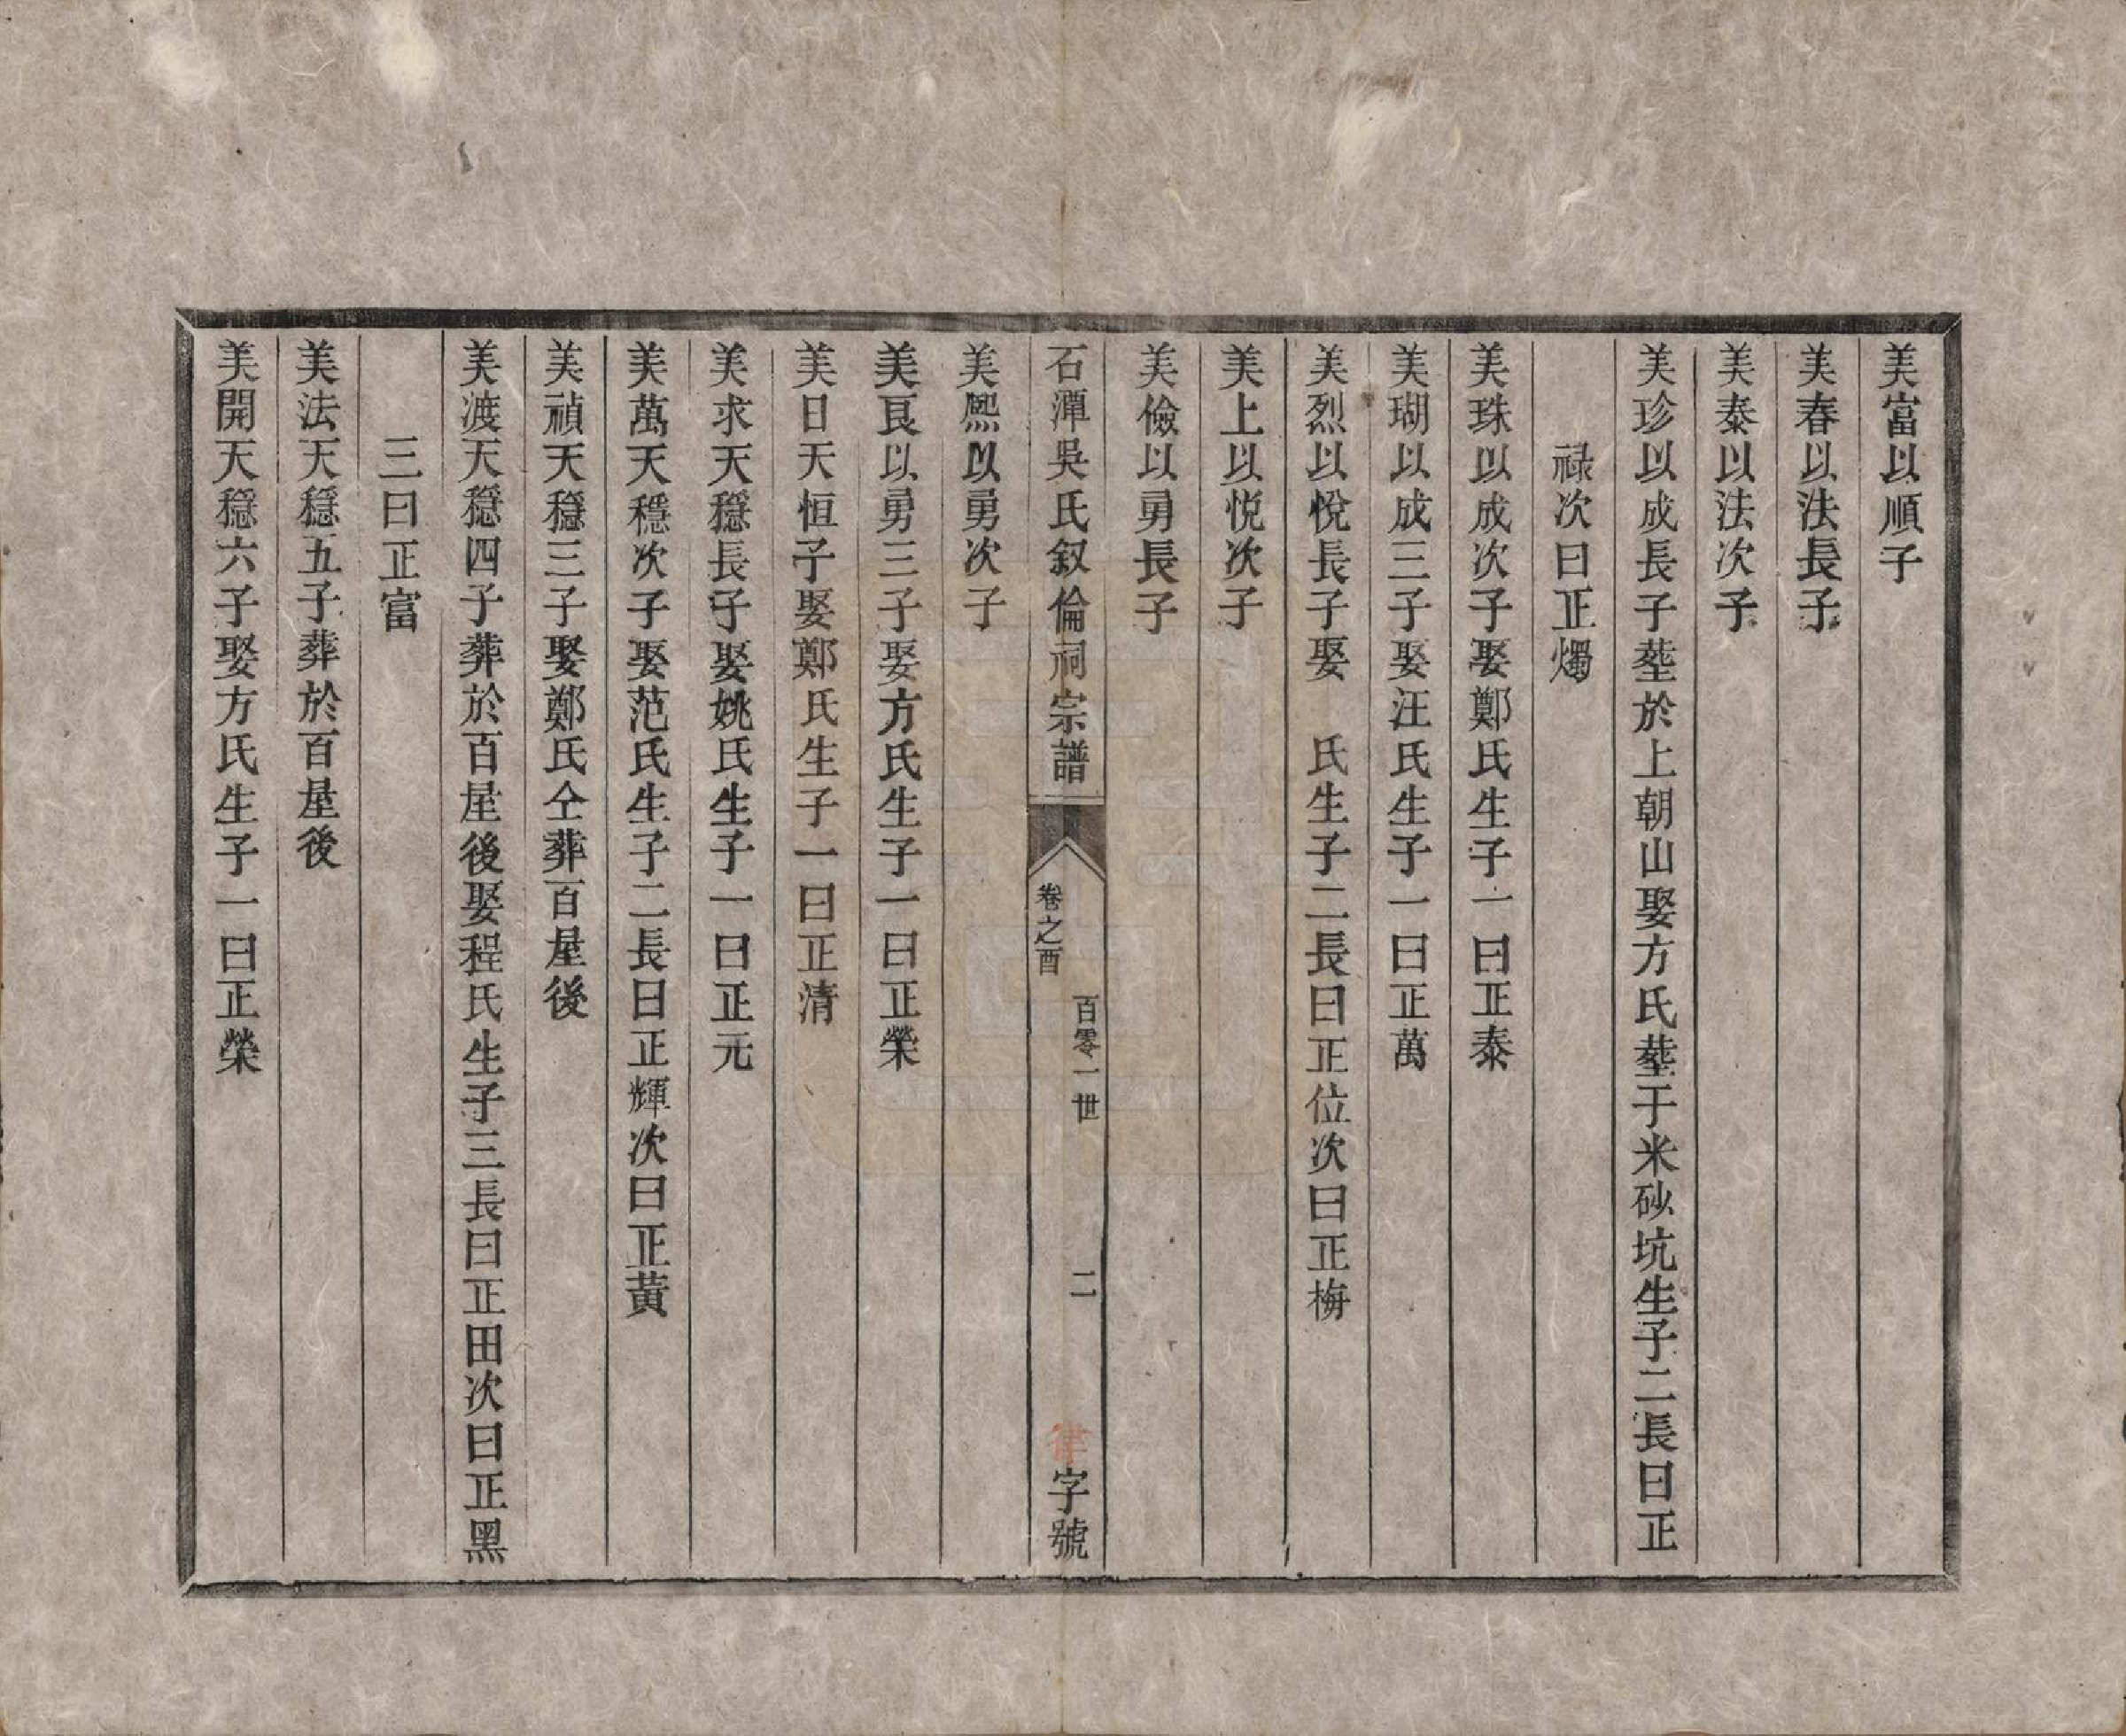 美富以順子
美春以法長子
美泰以法次子
美珍以成長子塟於上朝山娶方氏塟于米砂坑生子二長曰正
禄次曰正燭
美珠以成次子娶鄭氏生子一曰正泰
美瑚以成三子娶汪氏生子一曰正萬
美烈以悅長子娶　氏生子二長曰正位次曰正梅
美上以悅次子
美儉以勇長子
石潭吳氏叙倫祠宗譜
卷之酉
百零一世
二
律字號
美熈以勇次子
美艮以勇三子娶方氏生子一曰正榮
美日天恒子娶鄭氏生子一曰正清
美求天穩長子娶姚氏生子一曰正元
美萬天穩次子娶范氏生子二長曰正輝次曰正黃
美禎天穩三子娶鄭氏仝葬百屋後
美渡天穩四子葬於百屋後娶程氏生子三長曰正田次曰正黑
三曰正富
美法天穩五子葬於百屋後
美開天穩六子娶方氏生子一曰正榮